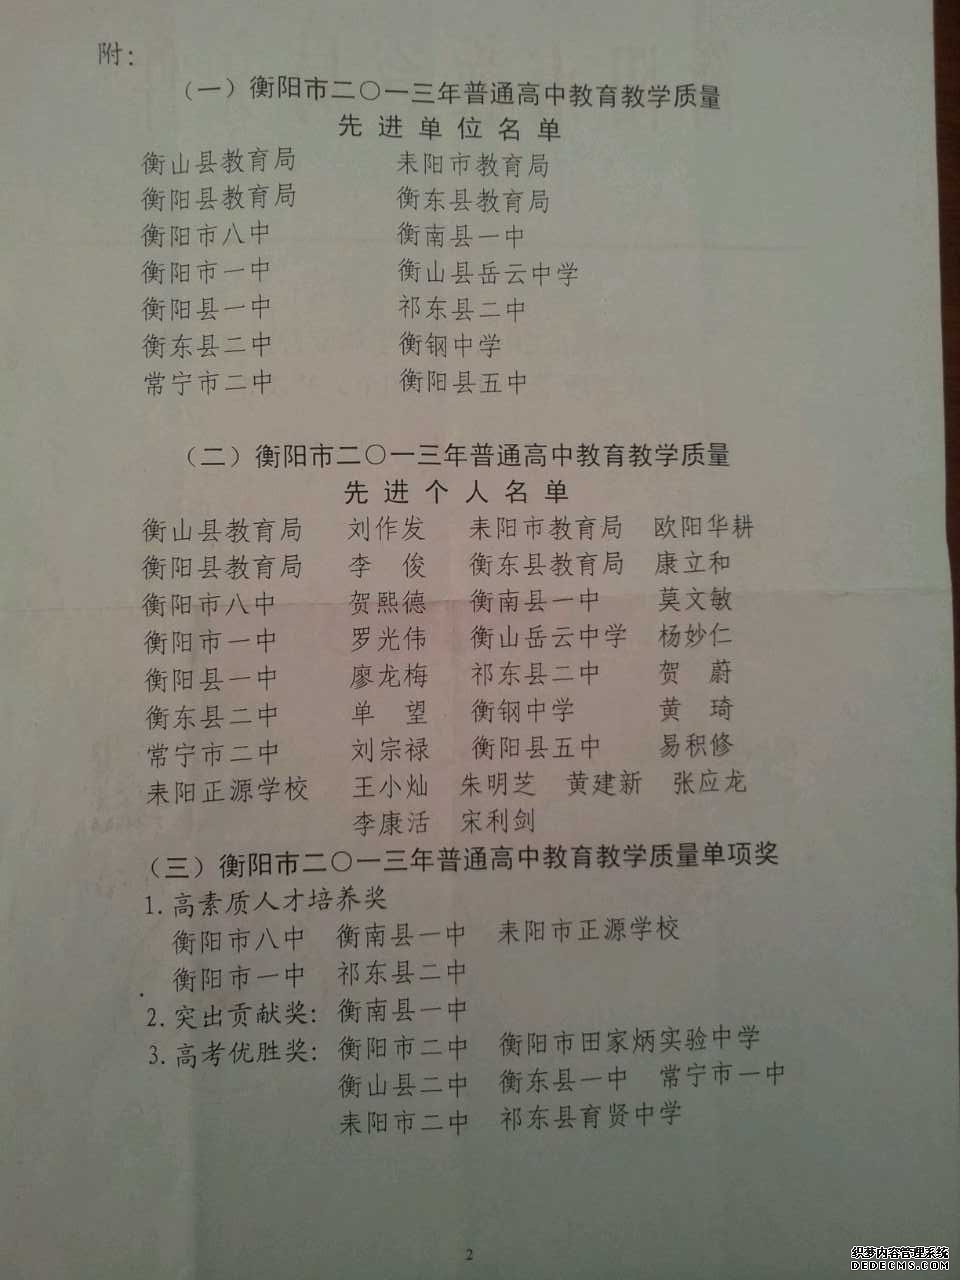 附：
（一）衡阳市二〇一三年普通高中教育教学质量
先 进 单 位 名 单
衡山县教育局 耒阳市教育局
衡阳县教育局 衡东县教育局
衡阳市八中 衡南县一中
衡阳市一中 衡山县岳云中学
衡阳县一中 祁东县二中
衡东县二中 衡钢中学
常宁市二中 衡阳县五中
（二）衡阳市二〇一三年普通高中教育教学质量
先 进 个 人 名 单
衡山县教育局 刘作发 耒阳市教育局 欧阳华耕
衡阳县教育局 李 俊 衡东县教育局 康立和
衡阳市八中 贺熙德 衡南县一中 莫文敏
衡阳市一中 罗光伟 衡山岳云中学 杨妙仁
衡阳县一中 廖龙梅 祁东县二中 贺 蔚
衡东县二中 单 望 衡钢中学 黄 琦
常宁市二中 刘宗禄 衡阳县五中 易积修
耒阳正源学校 王小灿 朱明芝 黄建新 张应龙
李康活 宋利剑
（三）衡阳市二〇一三年普通高中教育教学质量单项奖
1. 高素质人才培养奖
衡阳市八中 衡南县一中 耒阳市正源学校
衡阳市一中 祁东县二中
2. 突出贡献奖：衡南县一中
3. 高考优胜奖：衡阳市二中 衡阳市田家炳实验中学
衡山县二中 衡东县一中 常宁市一中
耒阳市二中 祁东县育贤中学
2
织梦内容管理系统
DEDECMS.COM